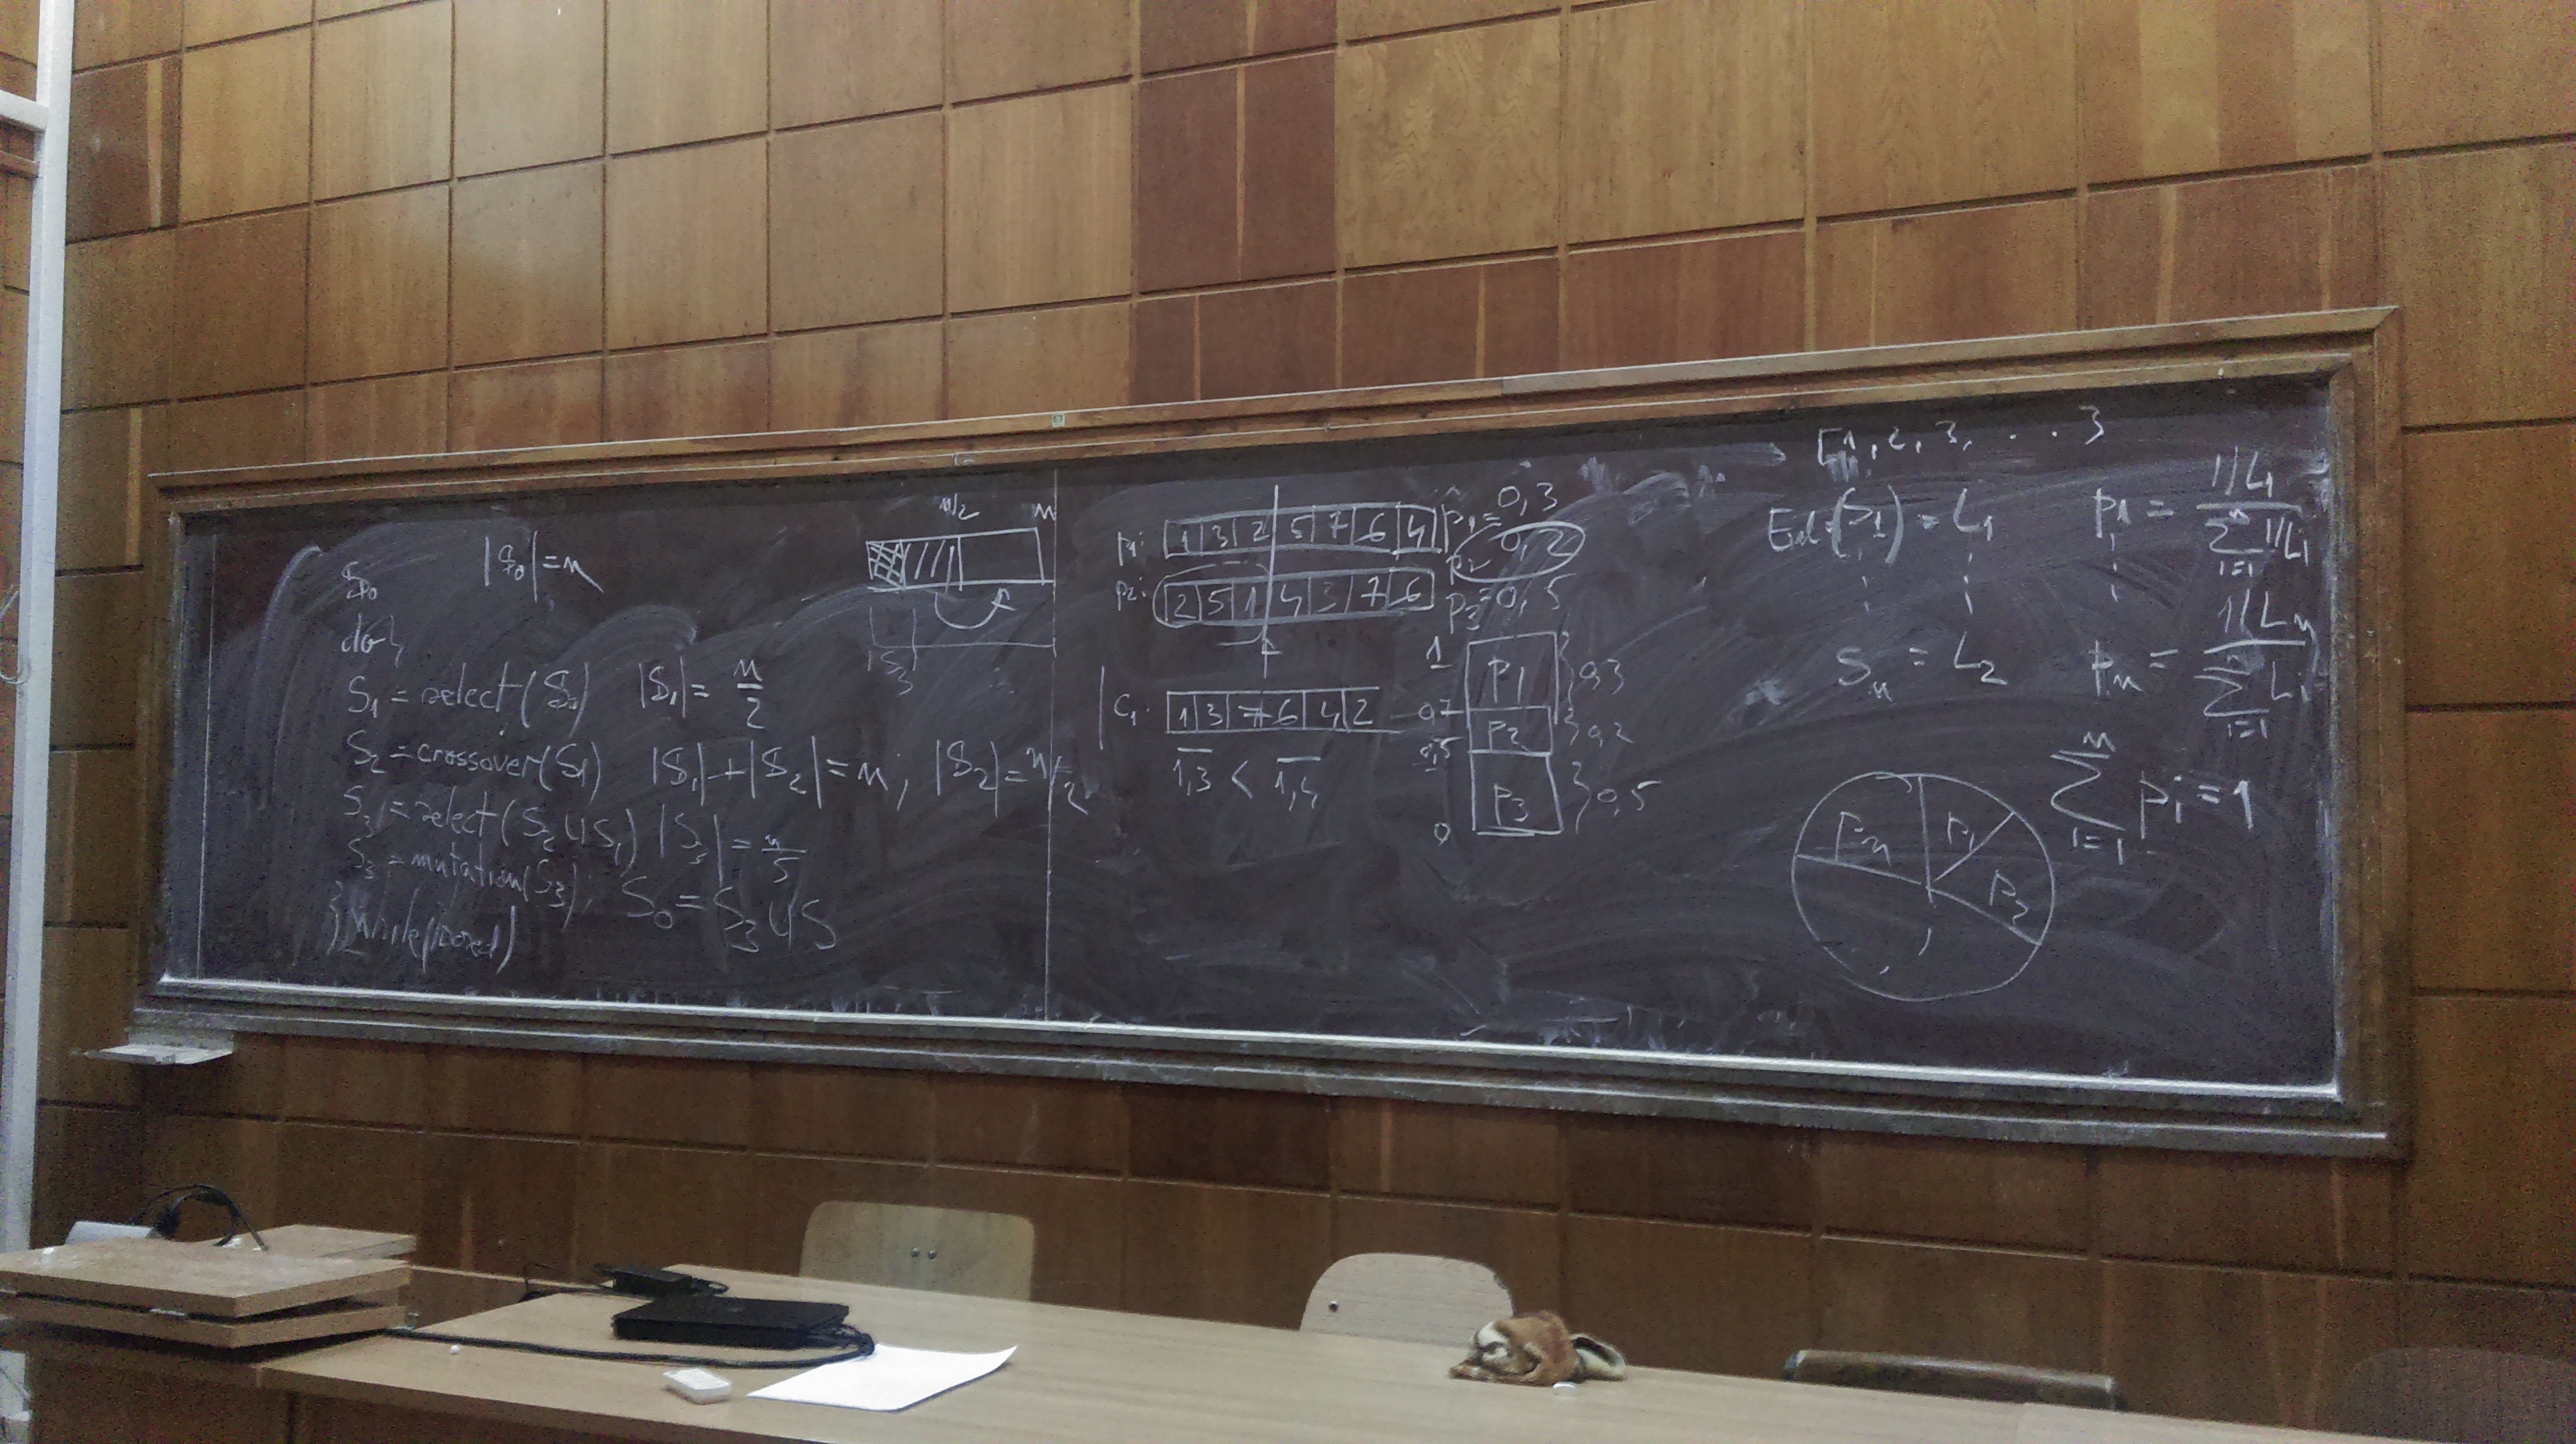 S₀ |S₀| = n
do {
S₁ = select(S₀) |S₁| = n/2
S₂ = crossover(S₁) |S₁| + |S₂| = n; |S₂| = n/2
S₃ = select(S₂ ∪ S₁) |S₃| = n/5
S₃ = mutation(S₃); S₀ = S₃ ∪ S
} while( )
n/2 n
S₃
p₁: 1 3 2 5 7 6 4
p₂: 2 5 1 4 3 7 6
c₁. 1 3 7 6 4 2
1,3 < 1,4
p₁ = 0,3
p₂ 0,2
p₃ = 0,5
1 p₁ } 0,3
0,7 p₂ } 0,2
0,5 p₃ } 0,5
0
[1, 2, 3, . . . 3
(S₁) = L₁ p₁ = 1/L₁ / Σ i=1 n 1/Li
Sₙ = L₂ pₙ = 1/Lₙ / Σ i=1 n Li
Σ i=1 n pi = 1
pₙ p₁ p₂